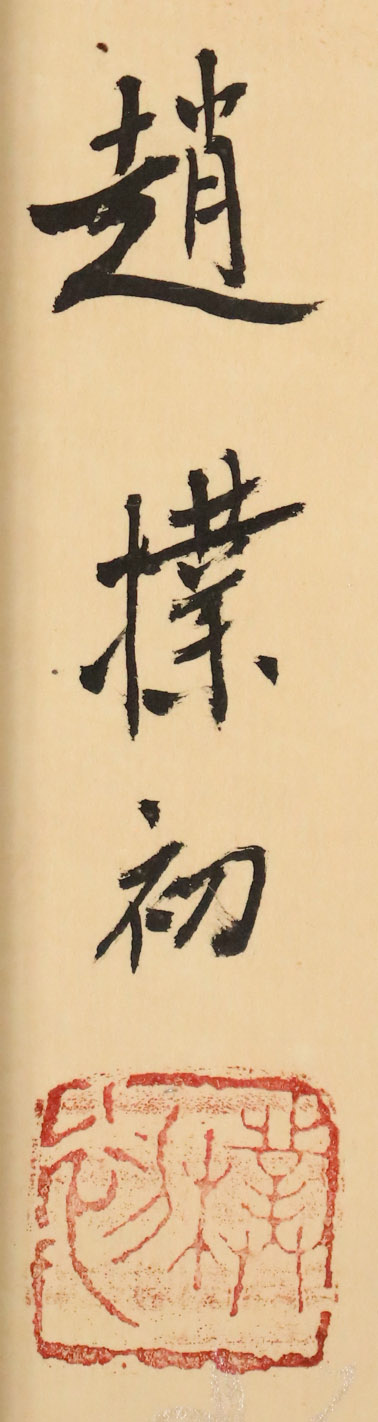 趙樸初
樸初